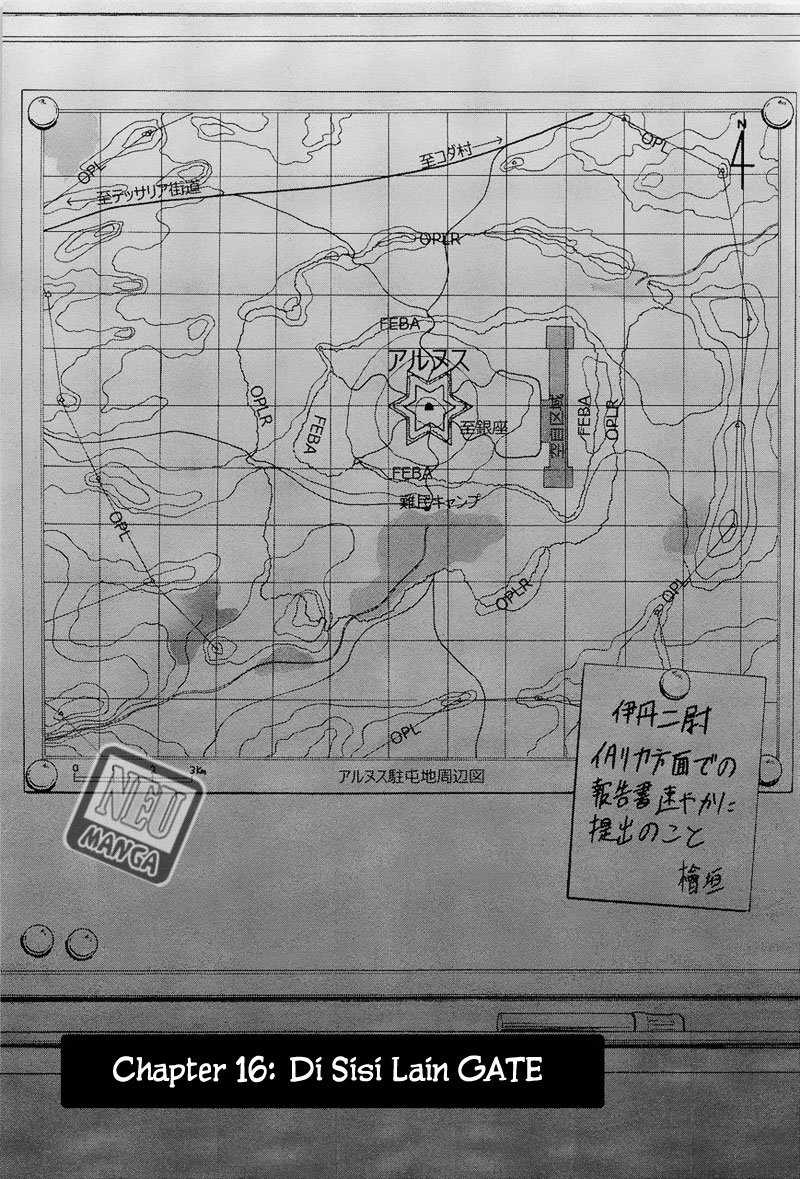 N
OPL
OPL
至コダ村→
←至テッサリア街道
OPLR
FEBA
アルヌス
OPLR
FEBA
至銀座
FEBA
OPLR
FEBA
難民キャンプ
OPL
OPLR
OPL
OPL
0
3Km
アルヌス駐屯地周辺図
伊丹二尉
イタリカ方面での
報告書速やかに
提出のこと
檜垣
NEU
MANGA
Chapter 16: Di Sisi Lain GATE